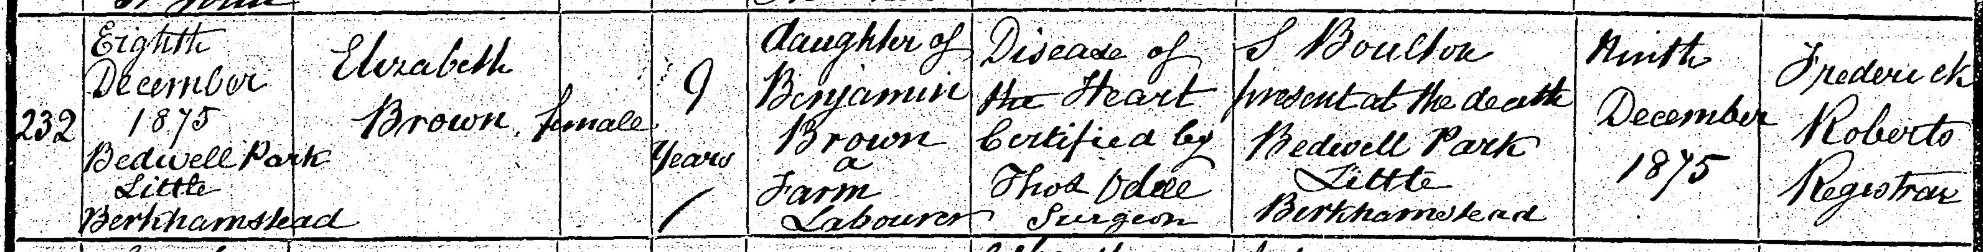 232
Eighth
December
1875
Bedwell Park
Little
Berkhamstead
Elizabeth
Brown
female
9
Years
daughter of
Benjamin
Brown
a
Farm
Labourer
Disease of
the Heart
Certified by
Thos Odell
Surgeon
S Boulton
present at the death
Bedwell Park
Little
Berkhamstead
Ninth
December
1875
Frederick
Roberts
Registrar